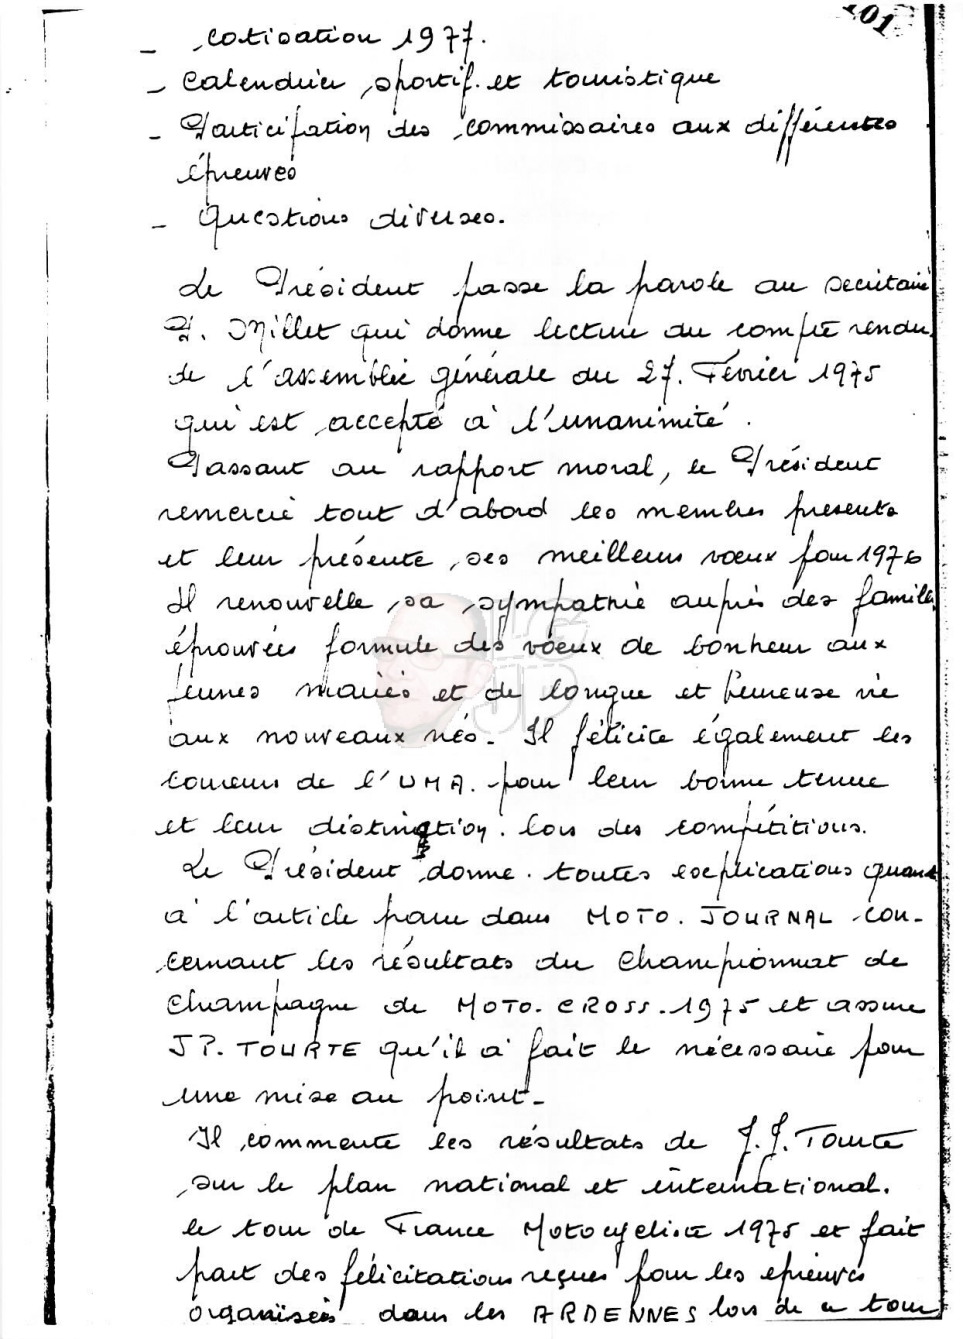 101
- cotisation 1977.
- Calendrier sportif et touristique
- Participation des commissaires aux différentes
épreuves
- Questions diverses.
Le Président passe la parole au secrétaire
P. Millet qui donne lecture du compte rendu
de l'assemblée générale du 27. Février 1975
qui est accepté à l'unanimité.
Passant au rapport moral, le Président
remercie tout d'abord les membres présents
et leur présente ses meilleurs voeux pour 1976
Il renouvelle sa sympathie auprès des famille
éprouvées formule des voeux de bonheur aux
jeunes mariés et de longue et heureuse vie
aux nouveaux nés - Il félicite également les
coureurs de l'UMA. pour leur bonne tenue
et leur distinction. lors des compétitions.
Le Président donne. toutes explications quant
à l'article paru dans MOTO. JOURNAL con-
cernant les résultats du Championnat de
Champagne de MOTO. CROSS. 1975 et assure
JP. TOURTE qu'il a fait le nécessaire pour
une mise au point -
Il commente les résultats de J. J. Tourte
sur le plan national et international.
le tour de France Motocycliste 1975 et fait
part des félicitations reçues pour les épreuves
organisées dans les ARDENNES lors de ce tour